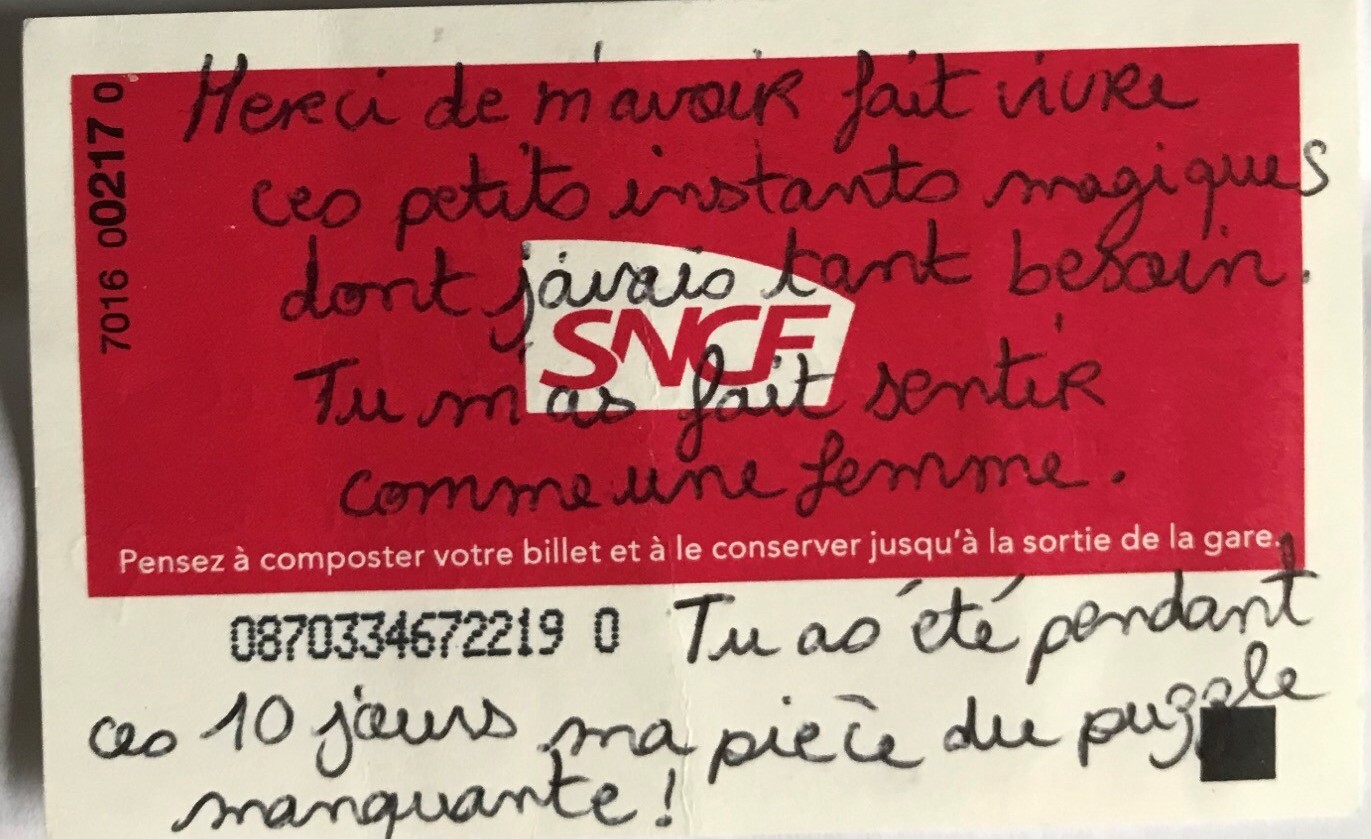 7016 00217 0
Merci de m'avoir fait vivre
ces petits instants magiques
dont j'avais tant besoin.
SNCF
Tu m'as fait sentir
comme une femme.
Pensez à composter votre billet et à le conserver jusqu'à la sortie de la gare.
0870334672219 0 Tu as été pendant
ces 10 jours ma pièce du puzzle
manquante !